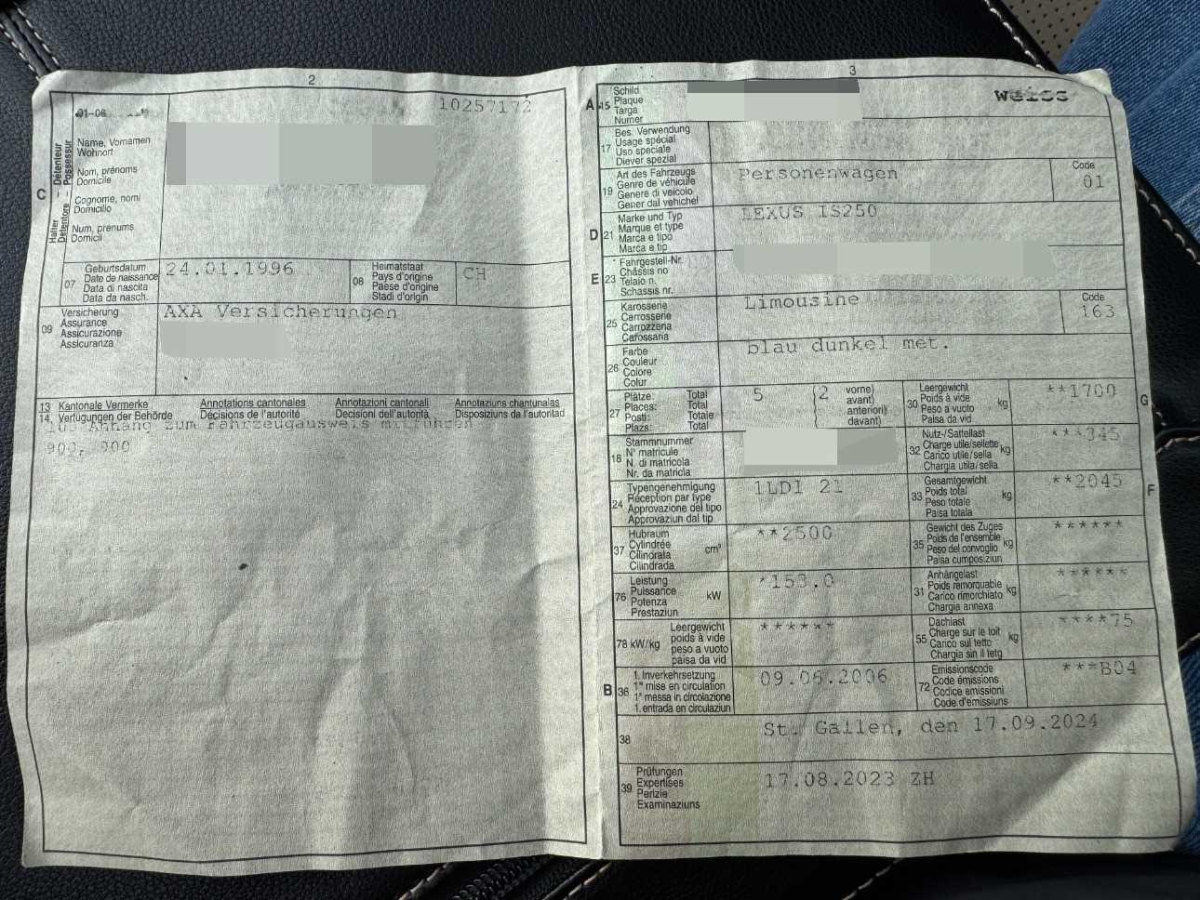 2
10257172
C
Halter
Détenteur
Detentore
Possessur
Name, Vornamen
Wohnort
Nom, prénoms
Domicile
Cognome, nomi
Domicilio
Num, prenums
Domicil
07 Geburtsdatum
Date de naissance
Data di nascita
Data da nasch.
24.01.1996
08 Heimatstaat
Pays d'origine
Paese d'origine
Stadi d'origin
CH
09 Versicherung
Assurance
Assicurazione
Assicuranza
AXA Versicherungen
13 Kantonale Vermerke Annotations cantonales Annotazioni cantonali Annotaziuns chantunalas
14 Verfügungen der Behörde Décisions de l'autorité Decisioni dell'autorità Disposiziuns da l'autoritad
Anhang zum Fahrzeugausweis mitführen
900, 900
3
A 15 Schild
Plaque
Targa
Numer
weiss
17 Bes. Verwendung
Usage spécial
Uso speciale
Diever spezial
19 Art des Fahrzeugs
Genre de véhicule
Genere di veicolo
Gener dal vehichel
Personenwagen
Code
01
D 21 Marke und Typ
Marque et type
Marca e tipo
Marca e tip
LEXUS IS250
E 23 Fahrgestell-Nr.
Châssis no
Telaio n.
Schassis nr.
25 Karosserie
Carrosserie
Carrozzeria
Carossaria
Limousine
Code
163
26 Farbe
Couleur
Colore
Colur
blau dunkel met.
27 Plätze: Total
Places: Total
Posti: Totale
Plazs: Total
5 (2 vorne)
avant)
anteriori)
davant)
30 Leergewicht
Poids à vide
Peso a vuoto
Paisa da vid
kg
**1700
G
18 Stammnummer
N° matricule
N. di matricola
Nr. da matricla
32 Nutz-/Sattellast
Charge utile/sellette
Carico utile/sella
Chargia utila/sella
kg
***345
24 Typengenehmigung
Réception par type
Approvazione del tipo
Approvaziun dal tip
1LD1 21
33 Gesamtgewicht
Poids total
Peso totale
Paisa totala
kg
**2045
F
37 Hubraum
Cylindrée
Cilindrata
Cilindrada
cm³
**2500
35 Gewicht des Zuges
Poids de l'ensemble
Peso del convoglio
Paisa cumposiziun
kg
******
76 Leistung
Puissance
Potenza
Prestaziun
kW
*153.0
31 Anhängelast
Poids remorquable
Carico rimorchiato
Chargia annexa
kg
******
78 kW/kg Leergewicht
poids à vide
peso a vuoto
paisa da vid
******
55 Dachlast
Charge sur le toit
Carico sul tetto
Chargia sin il tetg
kg
****75
B 36 1. Inverkehrsetzung
1re mise en circulation
1a messa in circolazione
1. entrada en circulaziun
09.06.2006
72 Emissionscode
Code émissions
Codice emissioni
Code d'emissiuns
***B04
38
St. Gallen, den 17.09.2024
39 Prüfungen
Expertises
Perizie
Examinaziuns
17.08.2023 ZH